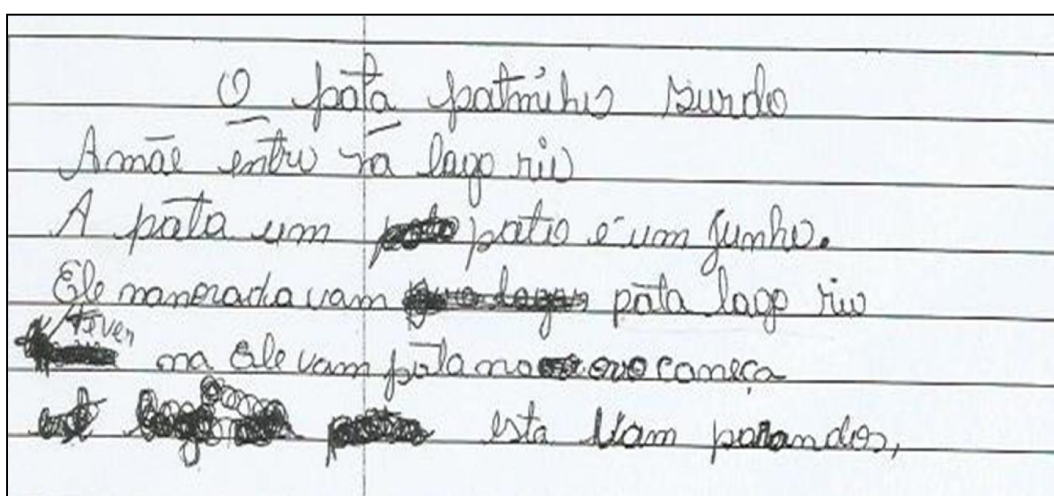 O pata patinho surdo
A mãe entru na lago riu
A pata um patio é um junho.
Ele manorada vam pata lago riu
Tiver na Ele vam pata no ovo começa
esta Vam patandos,